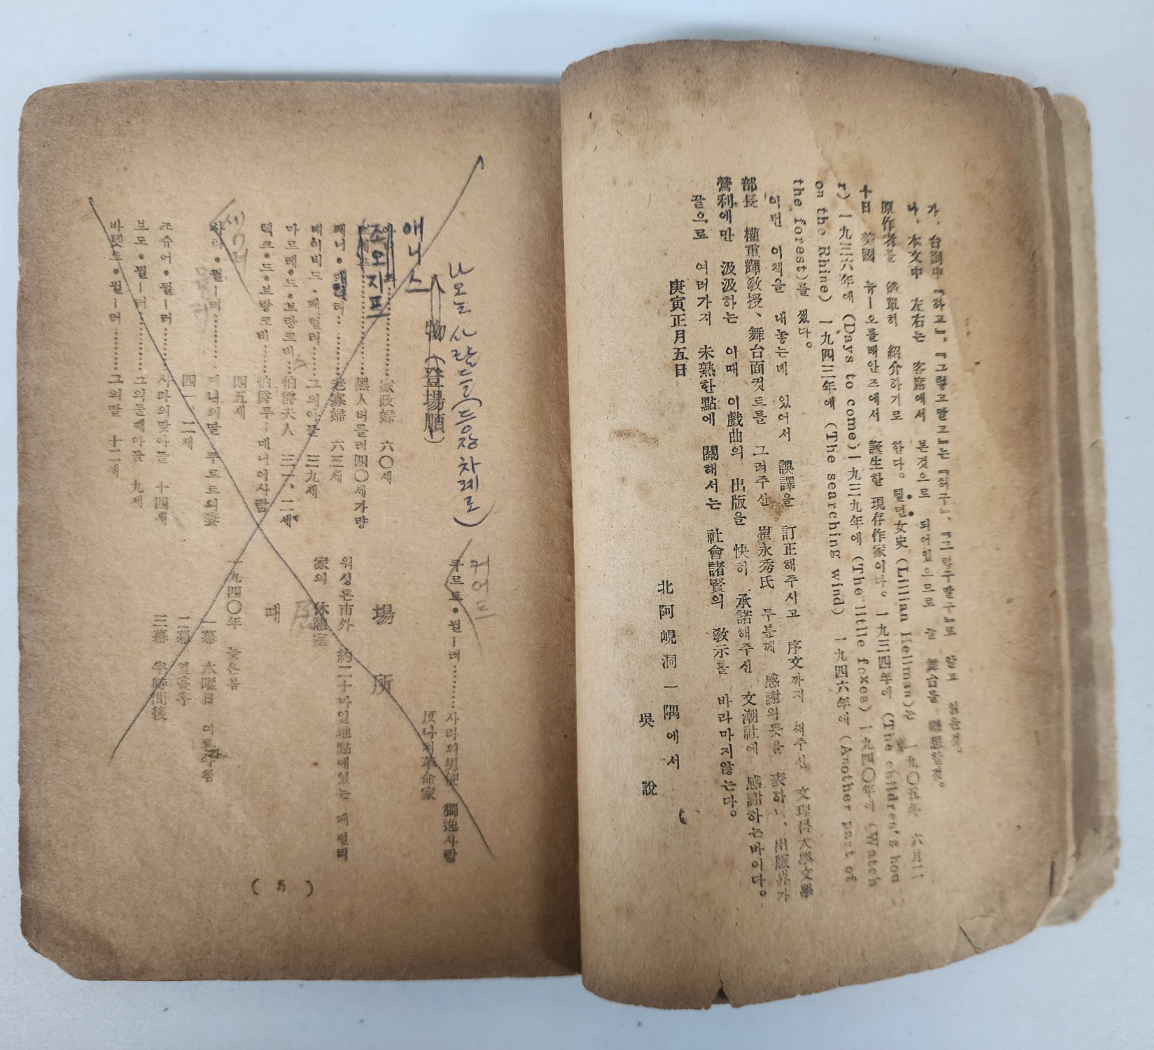 가, 台詞中 『하고』, 『그렇고말고』는 『허구』, 『그렇구말구』로 읽을것.
나, 本文中 左右는 客席에서 본것으로 되어있으므로 늘 舞台를 聯想할것.
原作者를 簡單히 紹介하기로 한다. 헬먼女史 (Lillian Hellman)는 一九〇五年 六月二
十日 美國 뉴ー오를래안즈에서 誕生한 現存作家이다. 一九三四年에 (The children's hou
r) 一九三六年에 (Days to come) 一九三九年에 (The little foxes) 一九四〇年에 (Watch
on the Rhine) 一九四三年에 (The searching wind) 一九四六年에 (Another part of
the forest)를 썼다.
이번 이책을 내놓는데 있어서 誤譯을 訂正해주시고 序文까지 써주신 文理科大學文學
部長 權重輝敎授、舞台面컷트를 그려주신 崔永秀氏 두분께 感謝의뜻을 表하며, 出版界가
營利에만 汲汲하는 이때 이戱曲의 出版을 快히 承諾해주신 文潮社에 感謝하는바이다。
끝으로 여러가지 未熟한點에 關해서는 社會諸賢의 敎示를 바라마지않는다。
庚寅正月五日
北阿峴洞一隅에서
吳 說
나오는 사람들(등장 차례로)
物 (登場順)
애니스
家政婦 六〇세
조오지프
黑人버틀러 四〇세가량
老寡婦 六三세
데이비드・패럴리 그의아들 三九세
마르테・드・브랑코비 伯爵夫人 三一、二세
텍크・드・브랑코비 伯爵 루ー매니아사람
四五세
사라・뮐ー러 패니의딸 쿠르트의妻
四一、二세
죠슈어・뮐ー러 사라의맏아들 十四세
보도・뮐ー러 그의둘째아들 九세
바벳트・뮐ー러 그의딸 十二세
커어트
쿠르트・뮐ー러 사라의男便 獨逸사람
反나치革命家
場所
워싱톤市外 約二十마일地點에있는 패럴리
家의 休憩室
때
一九四〇年 늦은봄
一幕 水曜日 이른아침
二幕 열흘후
三幕 半時間後
( 5 )